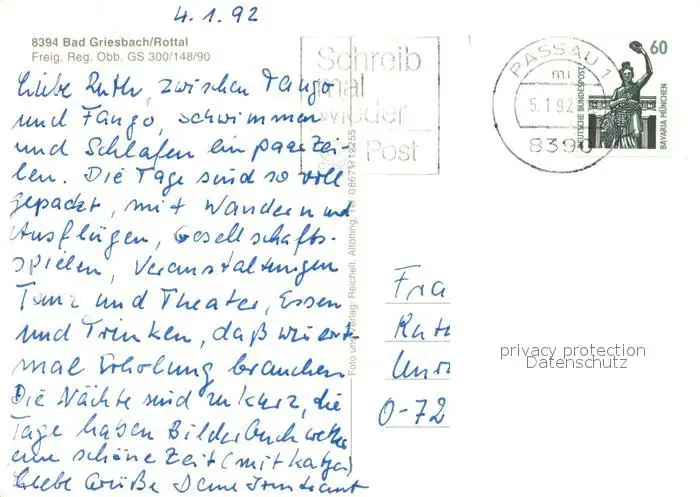 4.1.92
8394 Bad Griesbach/Rottal
Freig. Reg. Obb. GS 300/148/90
Liebe Ruth, zwischen Tango
und Fango, schwimmen
und Schlafen ein paar Zei-
len. Die Tage sind so voll
gepackt, mit Wandern und
Ausflügen, Gesellschafts-
spielen, Veranstaltungen
Tanz und Theater, Essen
und Trinken, daß wir erst
mal Erholung brauchen
Die Nächte sind zu kurz, die
Tage haben Bilderbuchwetter
eine schöne Zeit (mit Katja)
Liebe Grüße Deine
Foto und Verlag: Reichelt, Altötting, Tel. 08671/12255
Schreib
mal
wieder
Post
PASSAU 1
mi
5.1.92
8390
60
DEUTSCHE BUNDESPOST
BAVARIA MÜNCHEN
Fra
O-72
privacy protection
Datenschutz